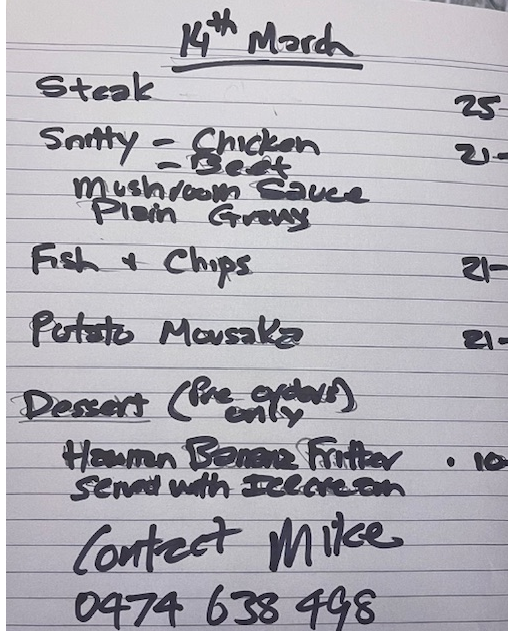 14th March
Steak 25-
Snitty - Chicken 21-
- Beef
Mushroom Sauce
Plain Gravy
Fish + Chips 21-
Potato Mousaka 21-
Dessert (Pre orders)
only
Banana Fritter . 10
Served with Icecream
Contact Mike
0474 638 498